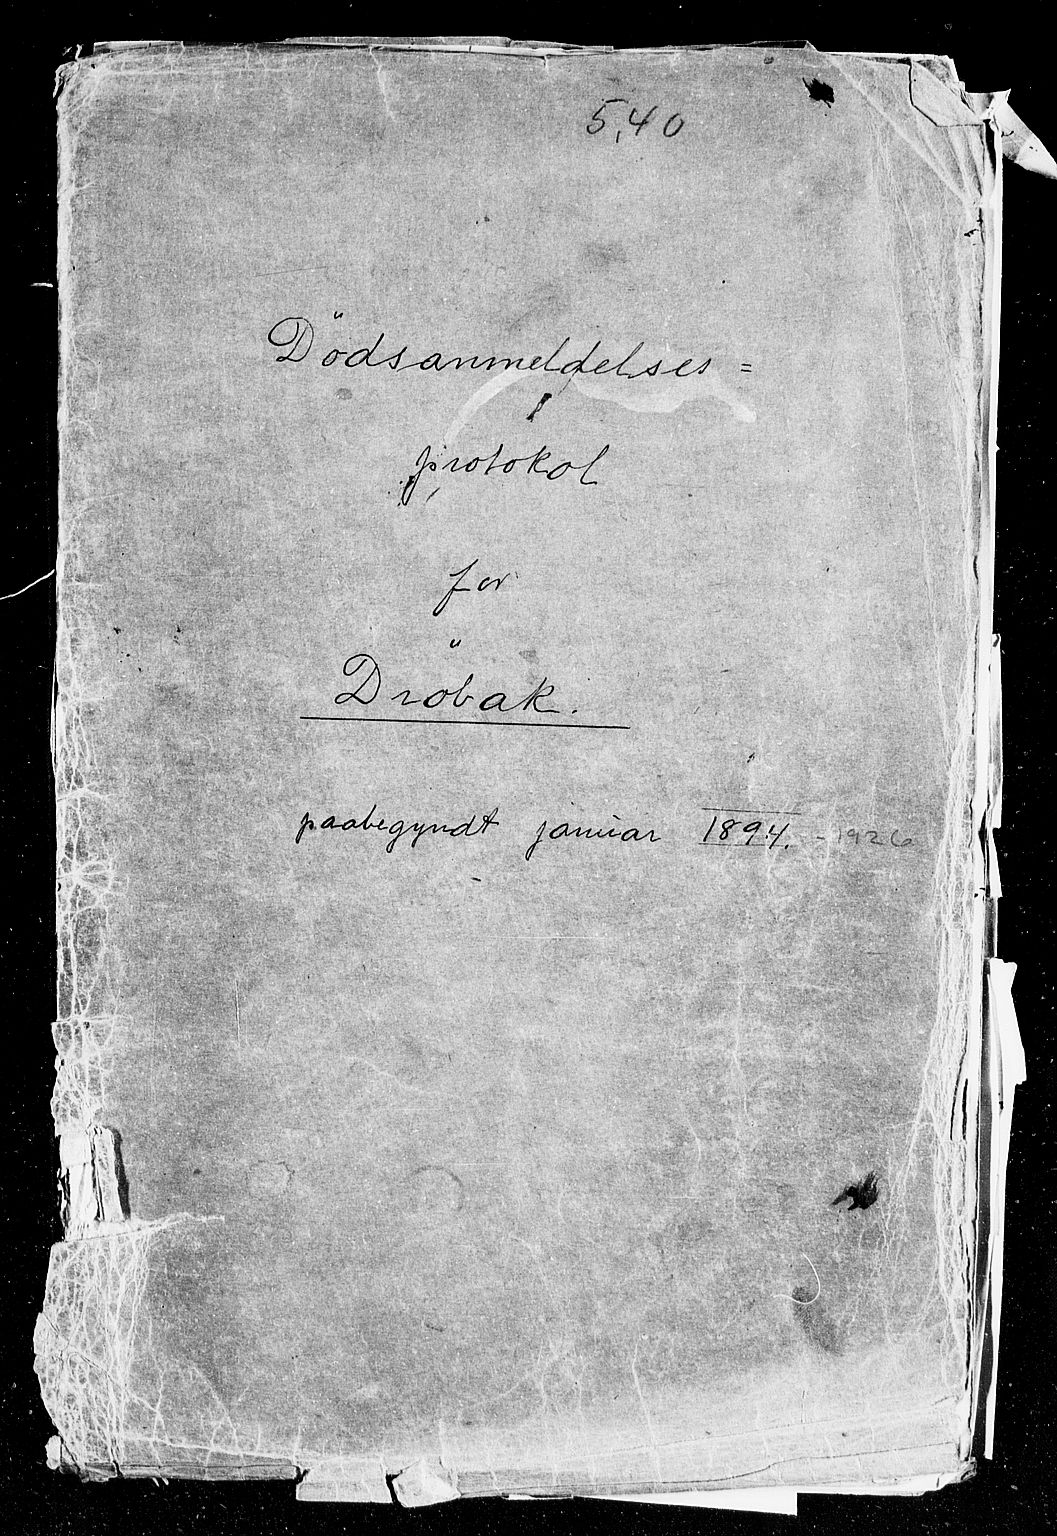 5,40
Dödsanmeldelses=
protokol
for
Dröbak.
paabegyndt januar 1894. - 1926